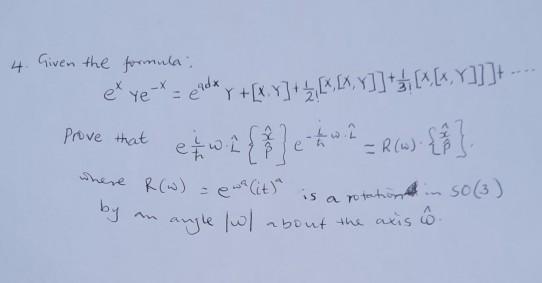 4. Given the formula:
e^x Ye^-x = e^adx Y + [X,Y] + 1/2! [X,[X,Y]] + 1/3! [X,[X,Y]]] + ....
Prove that e^(i/ħ ω·L̂) {x̂ p̂} e^(-i/ħ ω·L̂) = R(ω)·{x̂ p̂}.
where R(ω) = e^(ω^a (it)^a) is a rotation in SO(3)
by an angle |ω| about the axis ω̂.